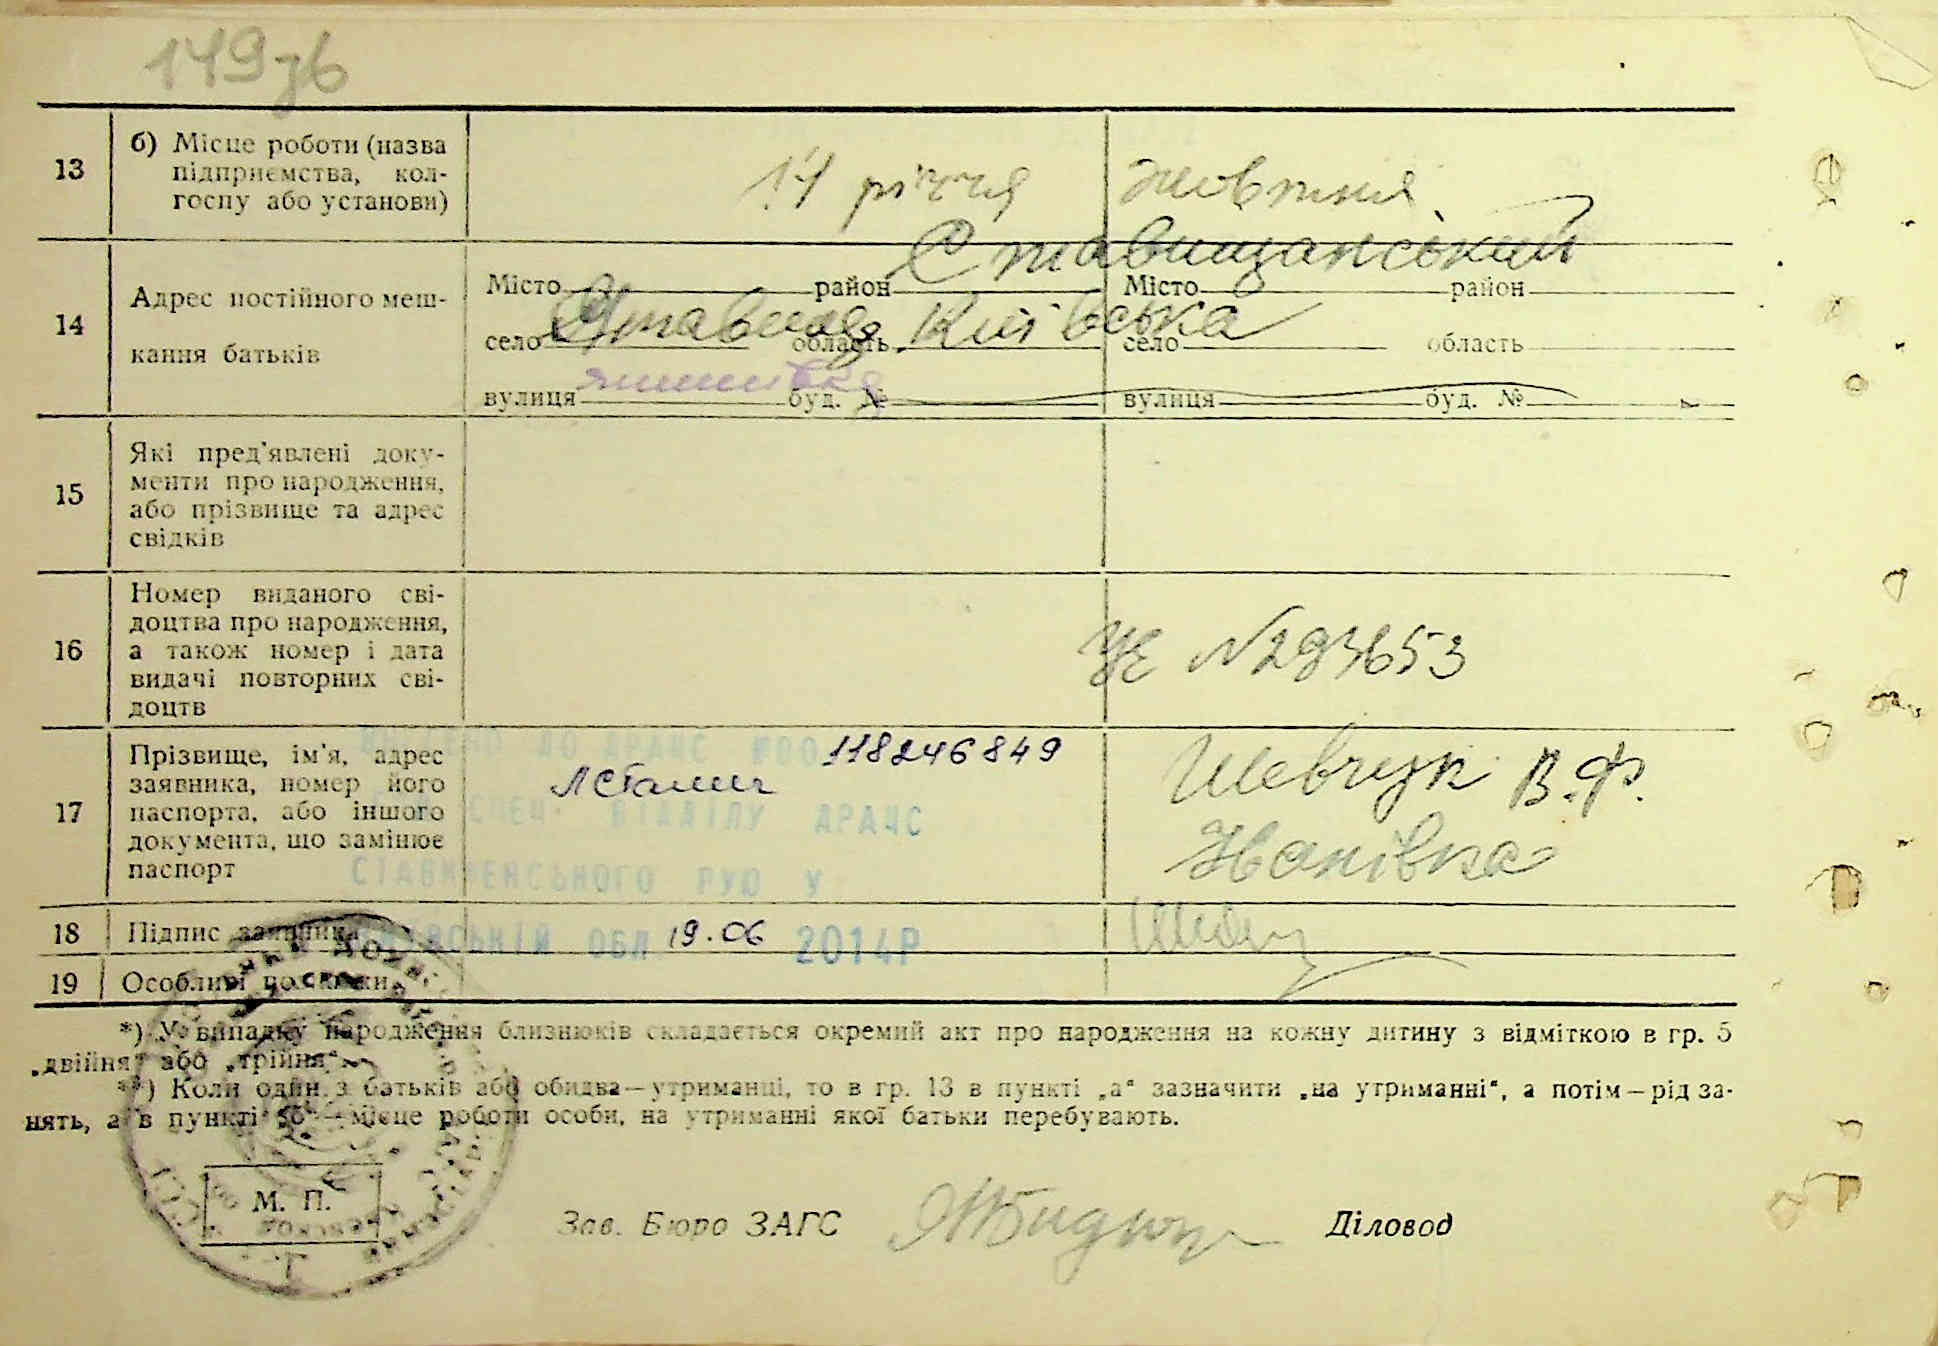 149зв
13
б) Місце роботи (назва
підприємства, кол-
госпу або установи)
14 річчя жовтня
14
Адрес постійного меш-
кання батьків
Ставищанський
Місто район Місто район
Ставища Київська
село область село область
вулиця буд. № вулиця буд. №
15
Які пред'явлені доку-
менти про народження,
або прізвище та адрес
свідків
16
Номер виданого сві-
доцтва про народження,
а також номер і дата
видачі повторних сві-
доцтв
УЕ №293653
17
Прізвище, ім'я, адрес
заявника, номер його
паспорта, або іншого
документа, що замінює
паспорт
ВНЕСЕНО ДО ДРАЦС №00118246849
СПЕЦ. ВІДДІЛУ ДРАЦС
СТАВИЩЕНСЬКОГО РУЮ У
КИЇВСЬКІЙ ОБЛ 19.06 2014Р
Шевчук В.Ф.
Іванівка
18
Підпис заявника
19
Особливі познаки
*) У випадку народження близнюків складається окремий акт про народження на кожну дитину з відміткою в гр. 5
„двійня" або „трійня".
**) Коли один з батьків або обидва—утриманці, то в гр. 13 в пункті „а" зазначити „на утриманні", а потім—рід за-
нять, а в пункті „б"—місце роботи особи, на утриманні якої батьки перебувають.
М. П.
Зав. Бюро ЗАГС
Діловод